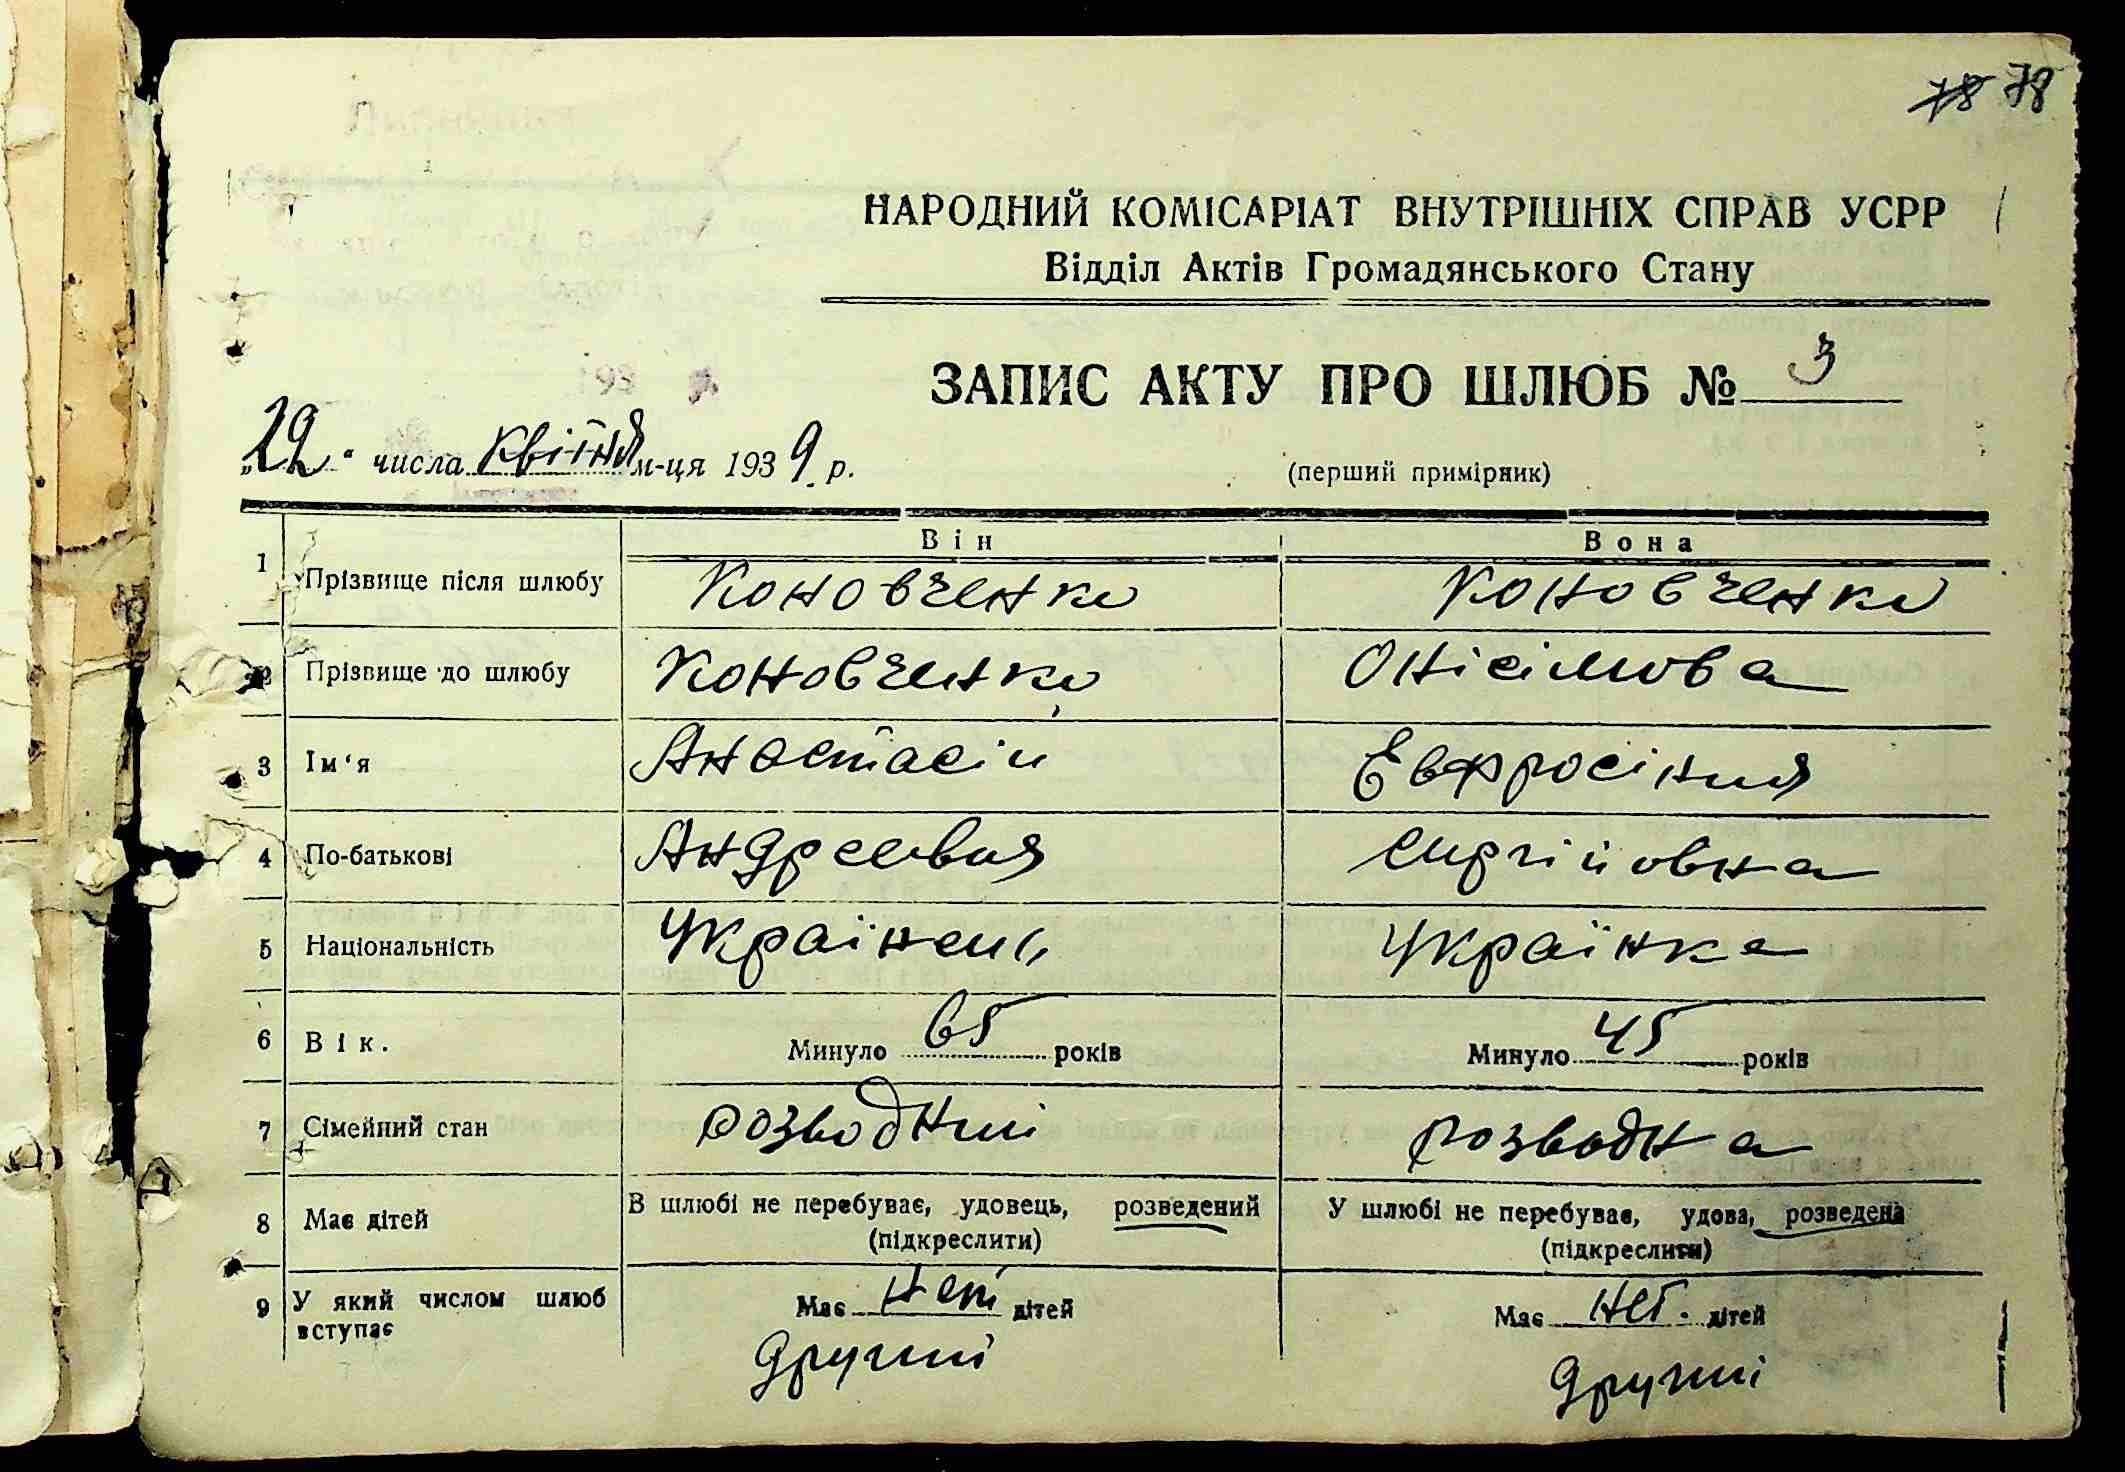 78 78
НАРОДНИЙ КОМІСАРІАТ ВНУТРІШНІХ СПРАВ УСРР
Відділ Актів Громадянського Стану
ЗАПИС АКТУ ПРО ШЛЮБ № 3
„22“ числа квітня м-ця 1939 р.
(перший примірник)
Він Вона
1 Прізвище після шлюбу Коновченко Коновченко
2 Прізвище до шлюбу Коновченко Онісімова
3 Ім‘я Анастасій Евфросінія
4 По-батькові Андреевич Сиргійовна
5 Національність Українець Українка
6 Вік. Минуло 65 років Минуло 45 років
7 Сімейний стан розводний розводна
8 Має дітей В шлюбі не перебуває, удовець, розведений У шлюбі не перебуває, удова, розведена
(підкреслити) (підкреслити)
9 У який числом шлюб вступає Має нет дітей Має нет. дітей
другий другий